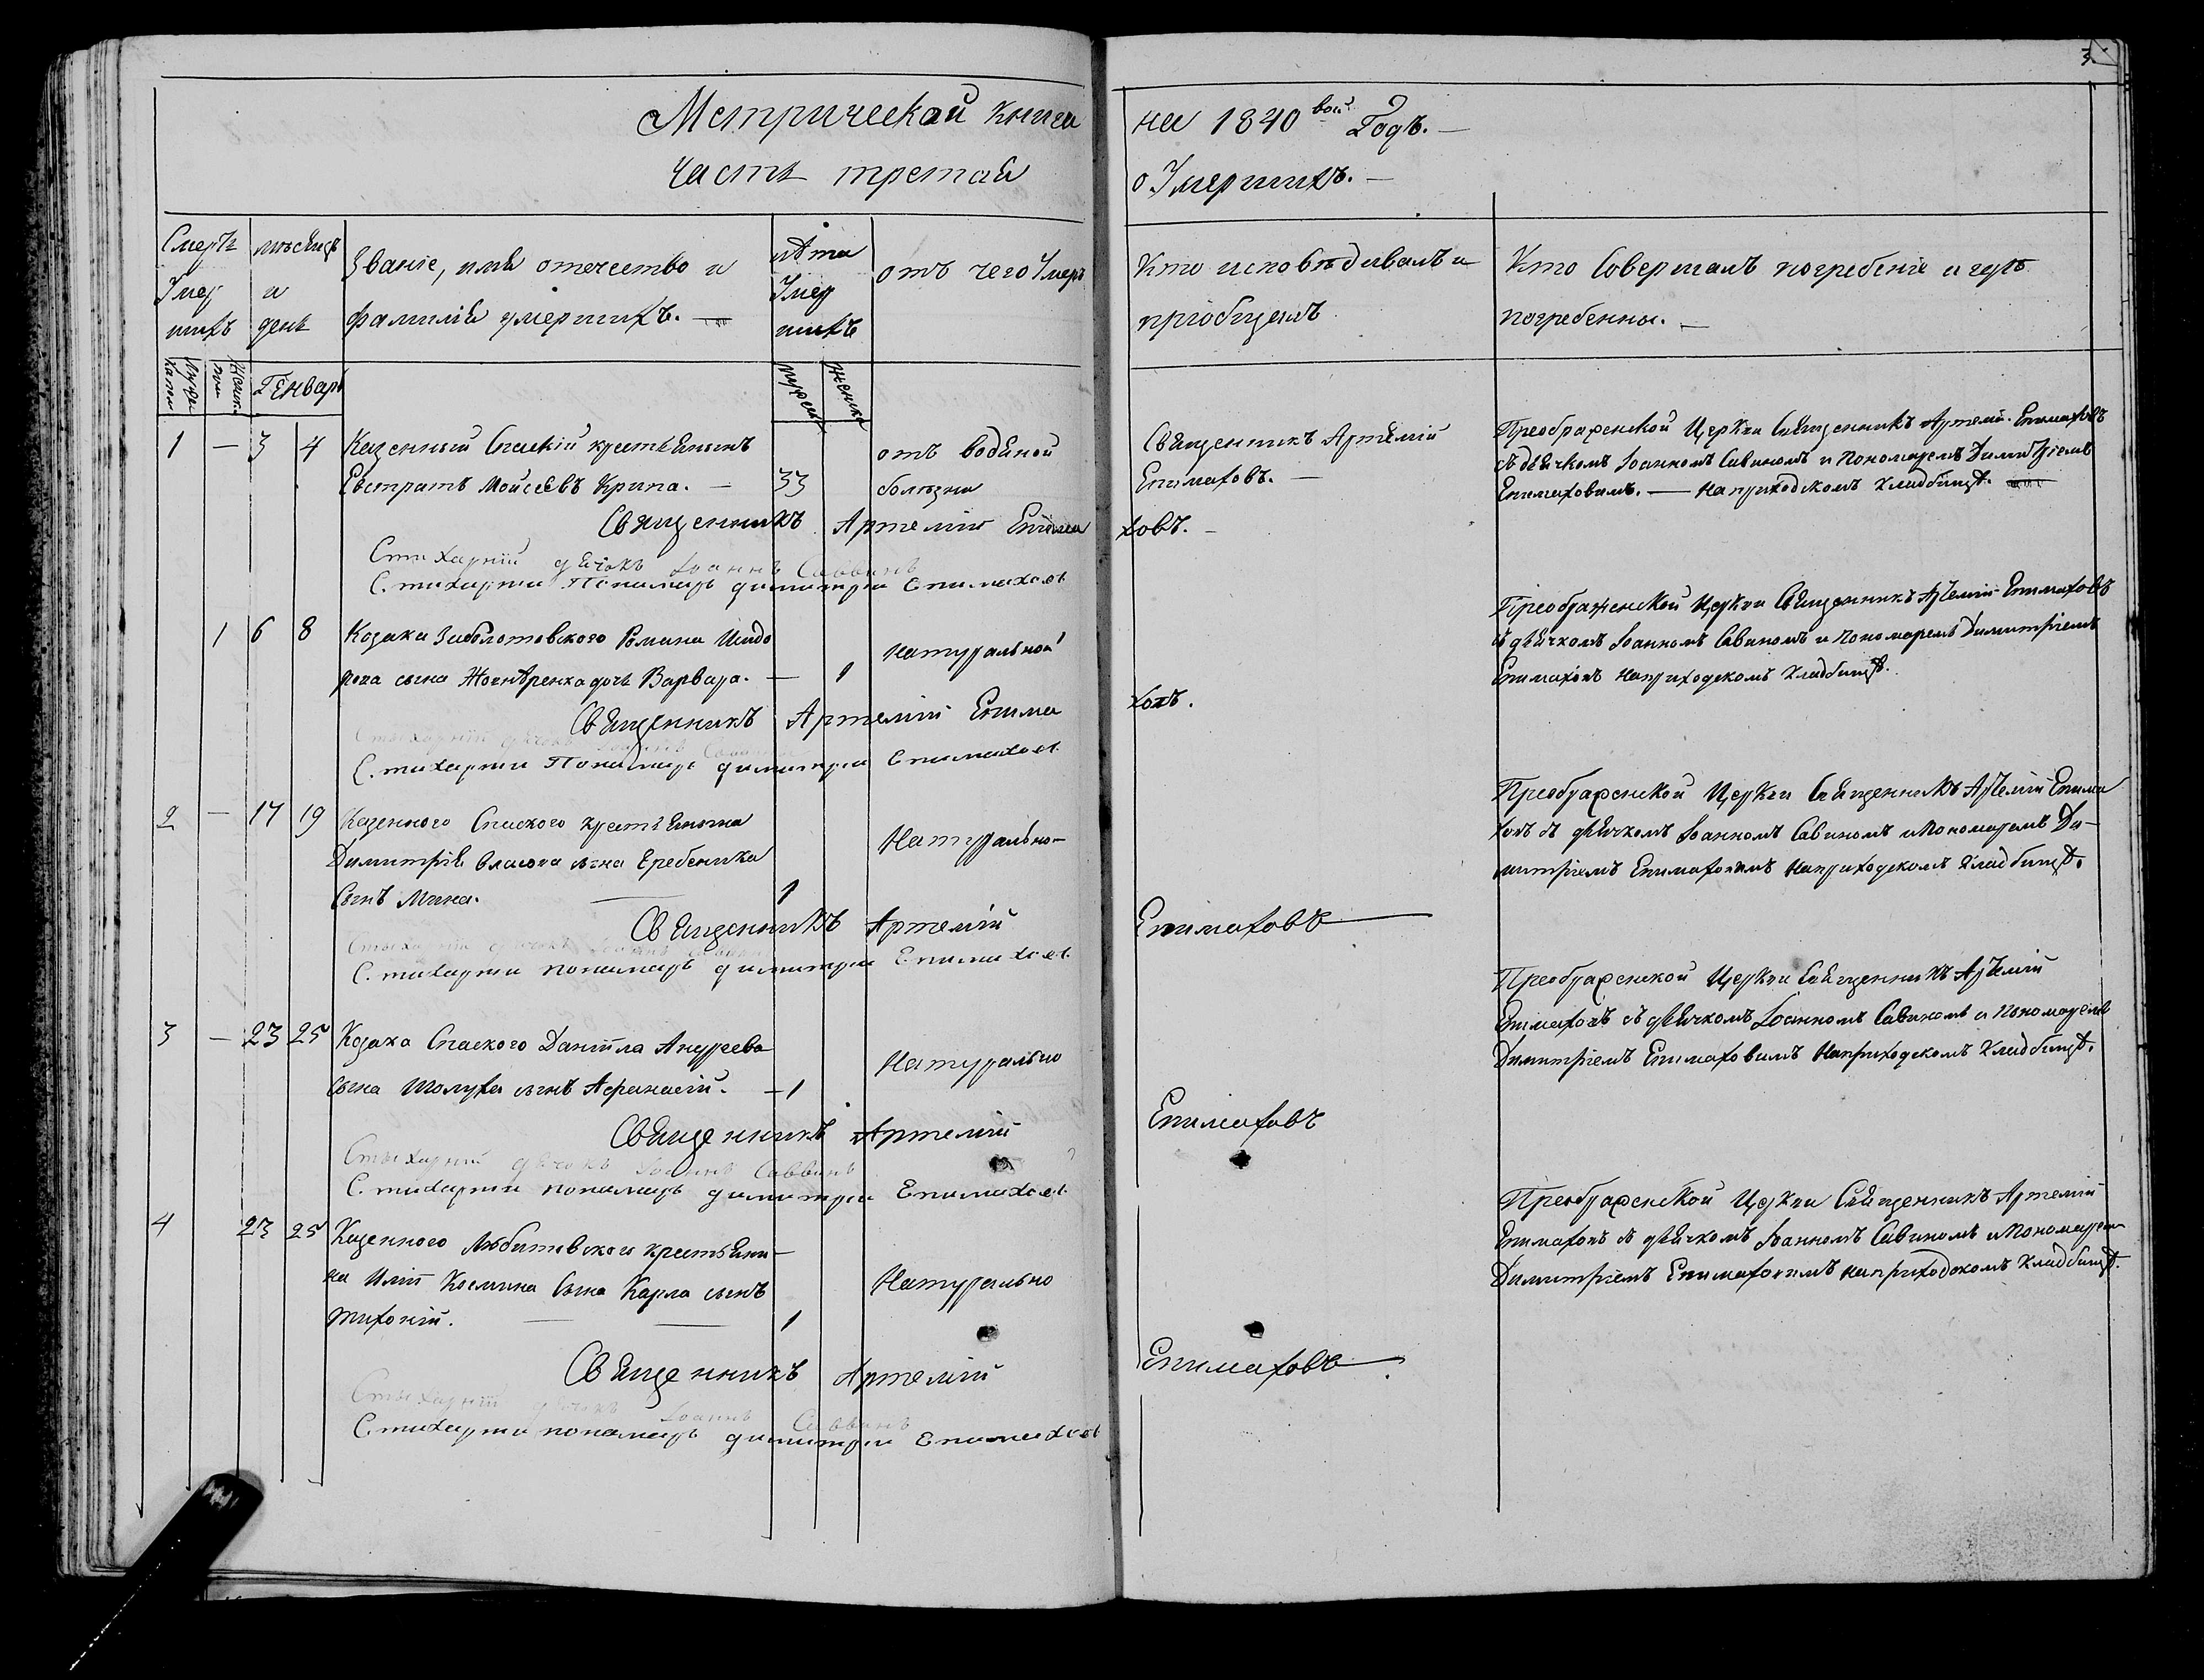 3
Метрической книги на 1840вой Годъ. —
Часть третая о Умершихъ. —
Смерть Умершихъ
мѣсяцъ и день
Званіе, имя отечество и
фамилія умершихъ. —
лѣта Умершихъ
отъ чего Умеръ
Кто исповѣдивалъ и
пріобщалъ
Кто Совершалъ погребеніе и гдѣ
погребенны. —
Генварь
1 — 3 4 Казенный Спаскій крестьянынъ
Евстратъ Мойсеевъ Крипа. — 33
отъ водяной
болѣзни
Священникъ Артемій
Епимаховъ. —
Преображенской Церкви Священникъ Артемій Епимаховъ
съ дячкомъ Іоанномъ Савиномъ и Пономаремъ Димитріемъ
Епимаховимъ. — На приходскомъ Кладбищѣ.
Священникъ Артемій Епимаховъ. —
Стихарній дячокъ Іоаннъ Саввинъ
Стихарни Понимарь димитри Епимахов
1 6 8 Козака Заболотовского Романа Исидо
рова сына Жогнѣренка дочь Варвара. — 1
Натуральной
Преображенской Церкви Священникъ Артемій Епимаховъ
съ дячкомъ Іоанномъ Савиномъ и Пономаремъ Димитріемъ
Епимаховъ на приходскомъ Кладбищѣ.
Священникъ Артемій Епимаховъ.
Стихарній дячокъ Іоаннъ Саввинъ
Стихарни Понимарь димитри Епимахов
2 — 17 19 Казенного Спаского крестьянина
Димитрія Власова сына Еребеника
Сынъ Мина. — 1
Натурально —
Преображенской Церкви Священникъ Артемій Епима
ховъ съ дячкомъ Іоанномъ Савиномъ и Пономаремъ Ди—
митріемъ Епимаховимъ На приходскомъ Кладбищѣ.
Священникъ Артемій Епимаховъ
Стихарній дячокъ Іоаннъ
Стихарни понимарь димитри Епимахов
3 — 23 25 Козака Спаского Даніила Андреева
сына Шолуха сынъ Афанасій. — 1
Натурально
Преображенской Церкви Священникъ Артемій
Епимаховъ съ дячкомъ Іоанномъ Савиномъ и Пономаремъ
Димитріемъ Епимаховимъ На приходскомъ Кладбищѣ.
Священникъ Артемій Епимаховъ
Стихарній дячокъ Іоаннъ Саввинъ
Стихарни понимарь димитри Епимахов
4 23 25 Казенного Любитовского крестьяни—
на Иліи Космина Сына Карла сынъ
Тихоній. — — 1
Натурально
Преображенской Церкви Священникъ Артемій
Епимаховъ съ дячкомъ Іоанномъ Савиномъ и Пономарем
Димитріемъ Епимаховимъ на приходскомъ Кладбищѣ.
Священникъ Артемій Епимаховъ.
Стихарній дячокъ Іоаннъ Саввинъ
Стихарни понимарь димитри Епимахов